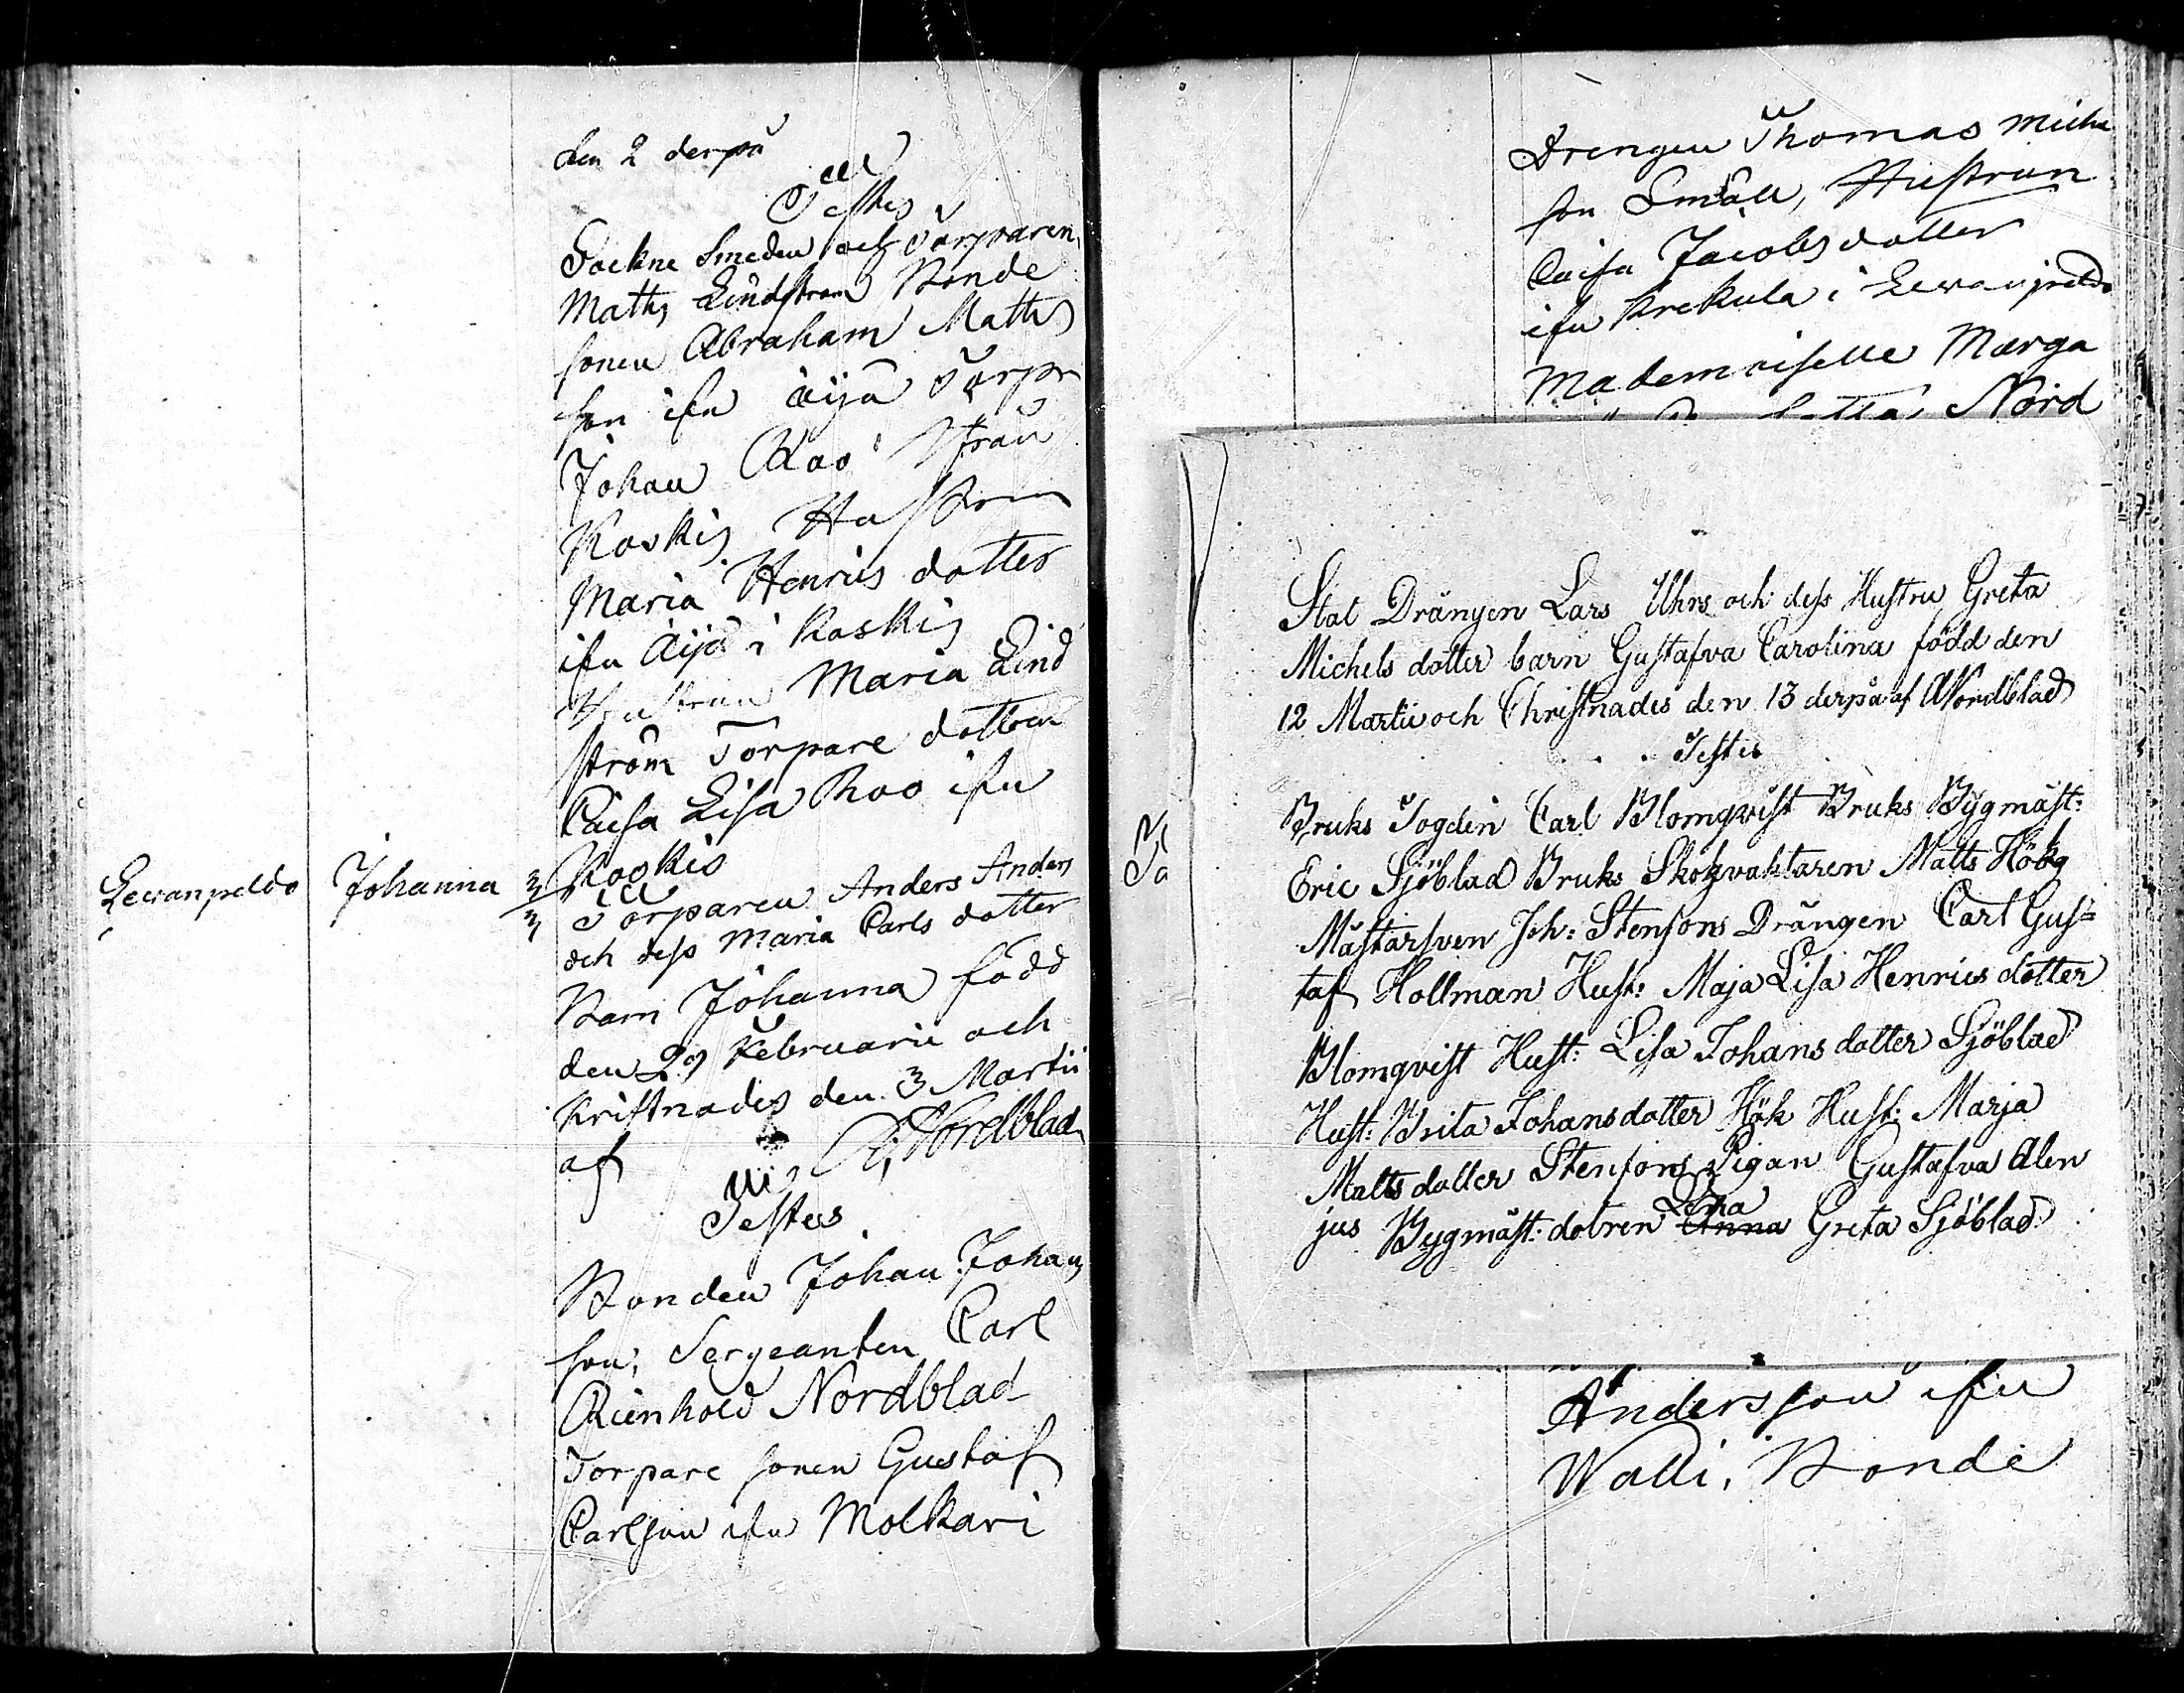 den 2 derpå
Testes
Sockne Smeden och Torparen
Matts Lindström Bonde
sonen Abraham Matts
son ifn Äijä Torpr
Johan Roo ifrån
Koskis Hustrun
Maria Henrics dotter
ifn Äijä i Koskis
Hustrun Maria Lind
ström Torpare dottren
Caisa Lisa Roo ifn
Koskis
Lewanpeldo Johanna 3/3 Torparen Anders Anders
och dess Maria Carls dotter
Barn Johanna född
den 29 Februarii och
Kristnades den 3 Martii
af Nordblad
Testes
Bonden Johan Johans
son, Sergeanten Carl
Reinhold Nordblad
Torpare sonen Gustaf
Carlson ifn Molkari
Drengen Thomas Miche
son Småll, Hustrun
Caisa Jacobs dotter
ifn Krekula i Lewanpeldo
Mademoiselle Marga
Nord
Stat Drängen Lars Uhrs och dess Hustru Greta
Michels dotter barn Gustafva Carolina född den
12 Martii och Christnades den 13 derpå af A Nordblad
Testis
Bruks Fogden Carl Blomqvist Bruks Bygmäst:
Eric Sjöblad Bruks Skogvaktaren Matts Hök
Mästarsven Joh: Stensons Drängen Carl Gus=
taf Hollman Hust: Maja Lisa Henrics dotter
Blomqvist Hust: Lisa Johans dotter Sjöblad
Hust: Brita Johansdotter Hök Hust: Marja
Matts dotter Stensons Pigan Gustafva Alen
Lena
jus Bygmäst: dotren Anna Greta Sjöblad
Andersson ifn
Walli, Bonde